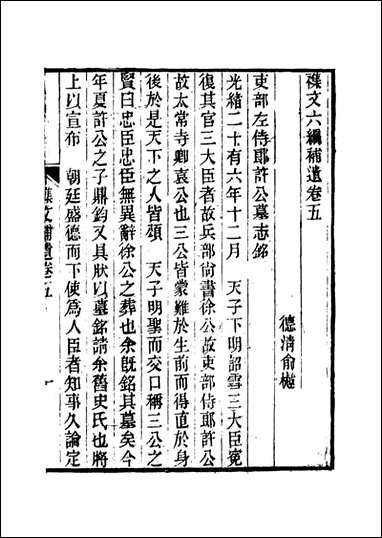 襍文六編補遺卷五
德清俞樾
吏部左侍郎許公墓志銘
光緒二十有六年十二月　天子下明詔雪三大臣冤
復其官三大臣者故兵部尙書徐公故吏部侍郎許公
故太常寺卿袁公也三公皆蒙難於生前而得直於身
後於是天下之人皆頌　天子明聖而交口稱三公之
賢曰忠臣忠臣無異辭徐公之葬也余旣銘其墓矣今
年夏許公之子鼎鈞又具狀以墓銘請余舊史氏也將
上以宣布　朝廷盛德而下使爲人臣者知事久論定
襍文補遺卷五
一